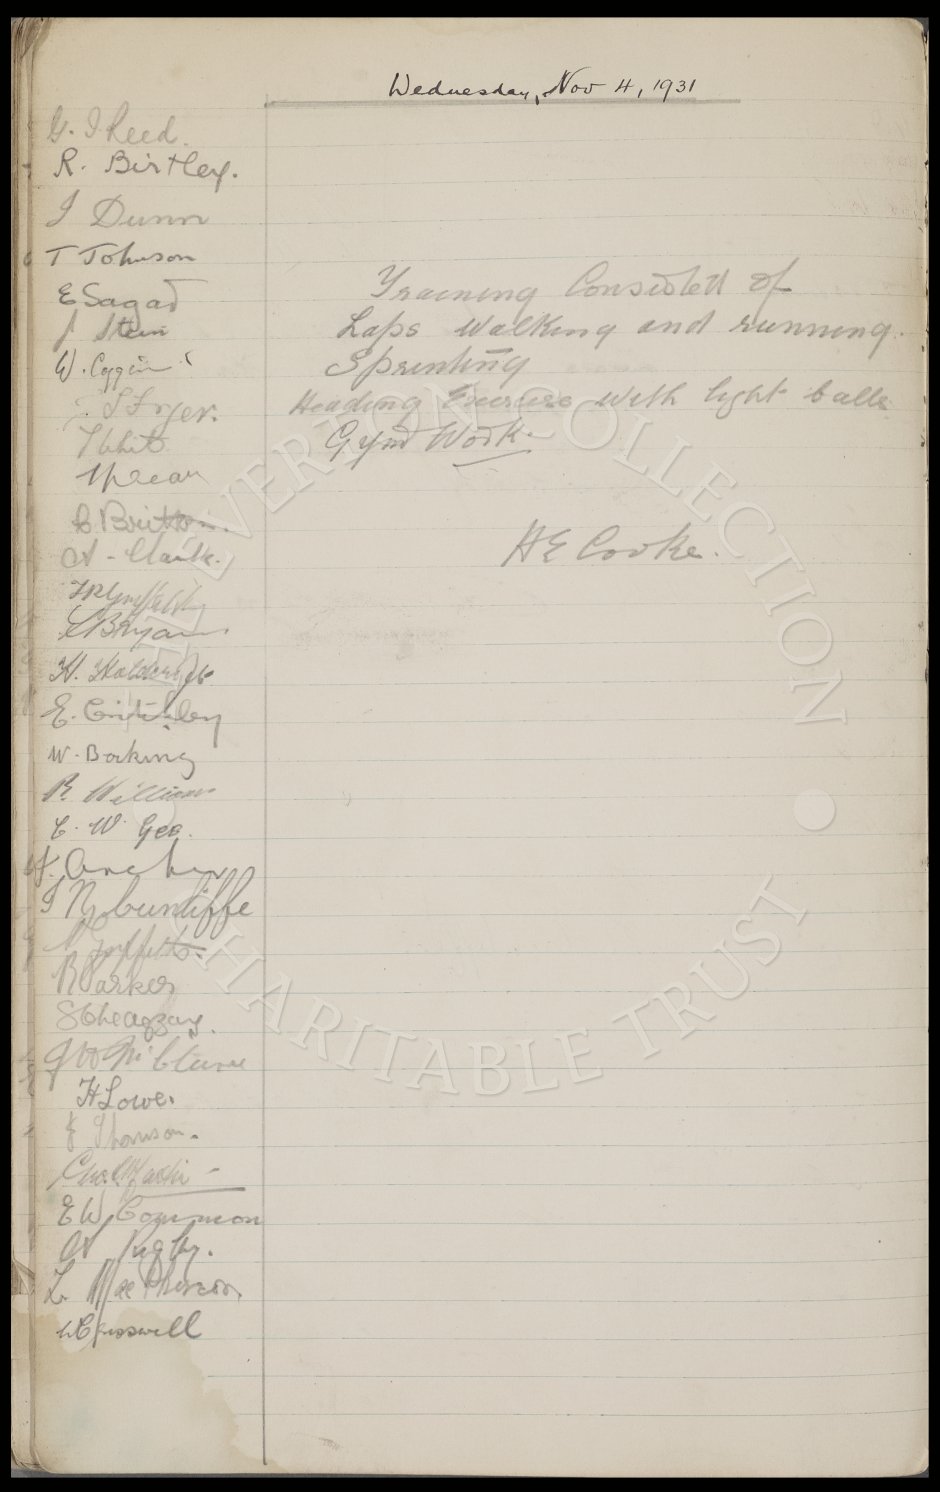 Wednesday, Nov 4, 1931
G. J Reed.
R. Birtley.
J Dunn
T Johnson
E Sagar
J Stein
W. Coggin
T White
C Britton.
A - Clark.
L Bryan
E. Critchley
W. Bocking
R. Williams
C. W Gee.
F. Archer
J N Cunliffe
Griffiths.
R Parker
S Chedgzoy.
H Lowe.
J Thomson.
E W Common
A Rigby.
L. MacPherson.
W Cresswell
Training Consisted of
Laps Walking and running.
Sprinting
Heading Exercise with light balls
Gym Work.
H E Cooke.
THE EVERTON COLLECTION • CHARITABLE TRUST •